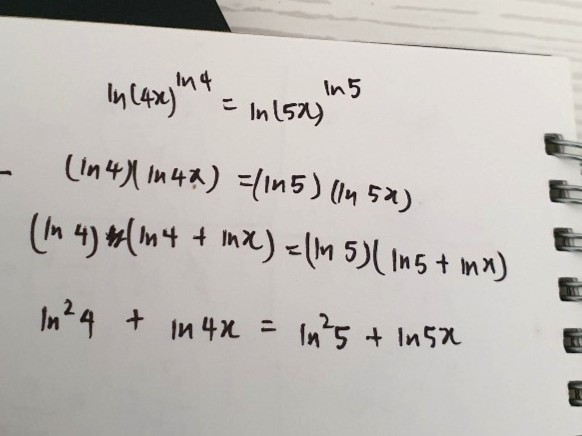 ln(4x)^ln4 = ln(5x)^ln5
(ln4)(ln4x) = (ln5)(ln5x)
(ln 4)(ln4 + lnx) = (ln 5)(ln5 + lnx)
ln²4 + ln4x = ln²5 + ln5x